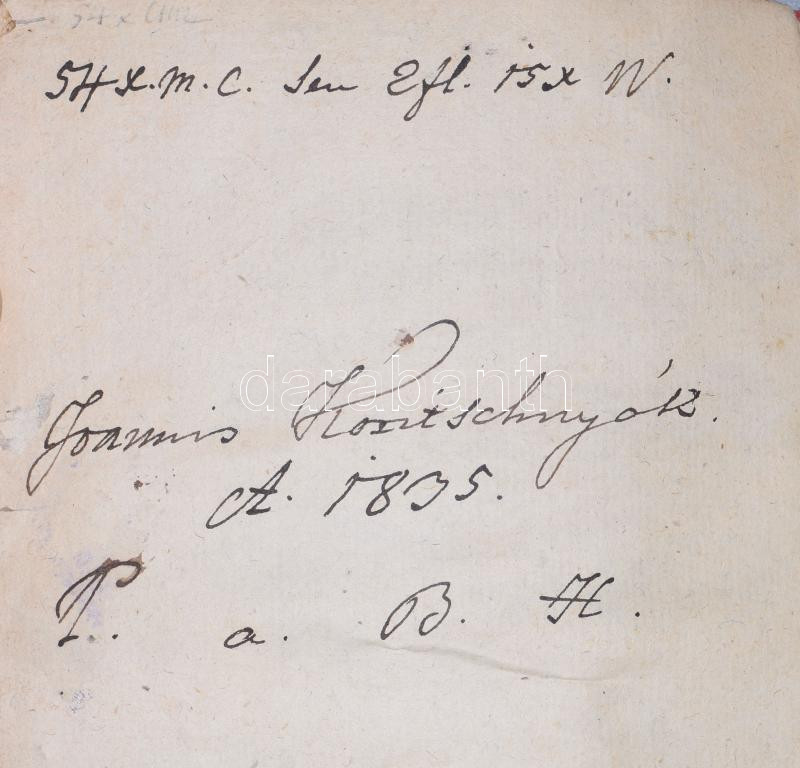 54 x
54 x. m. C. seu 2 fl. 15 x W.
darabanth
Joannis Kositschnyák.
A. 1835.
P. a. B. H.